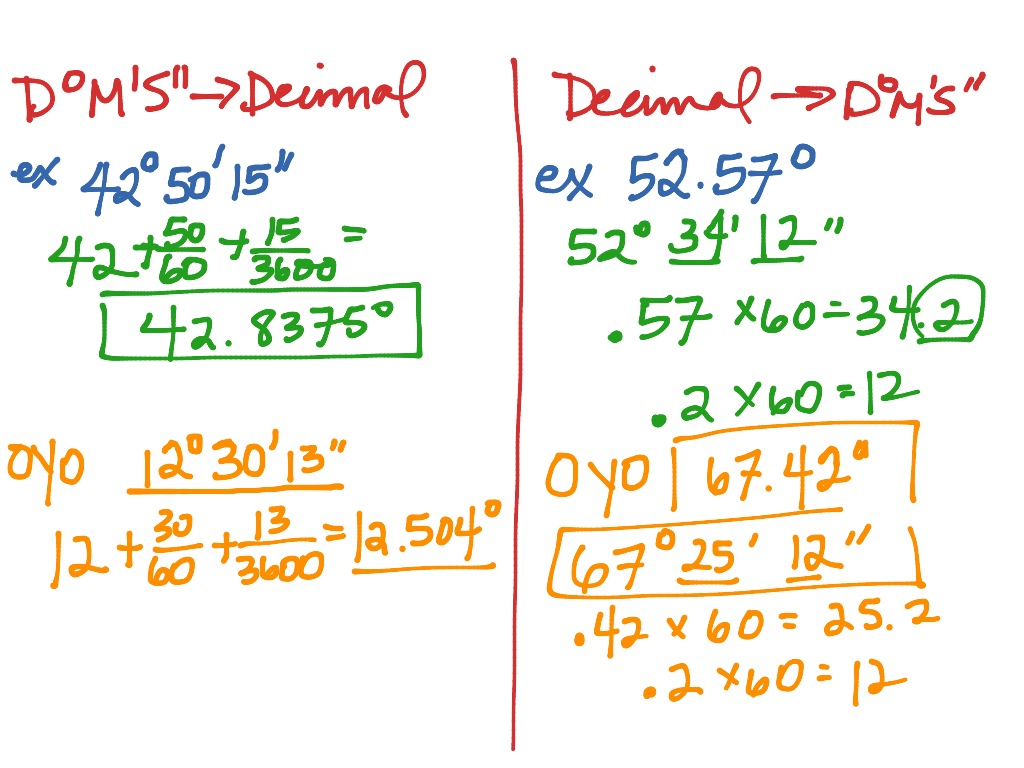 D°M'S" → Decimal
ex 42° 50' 15"
42 + 50/60 + 15/3600 =
42.8375°
OYO 12° 30' 13"
12 + 30/60 + 13/3600 = 12.504°
Decimal → D°M'S"
ex 52.57°
52° 34' 12"
.57 × 60 = 34.2
.2 × 60 = 12
OYO 67.42°
67° 25' 12"
.42 × 60 = 25.2
.2 × 60 = 12